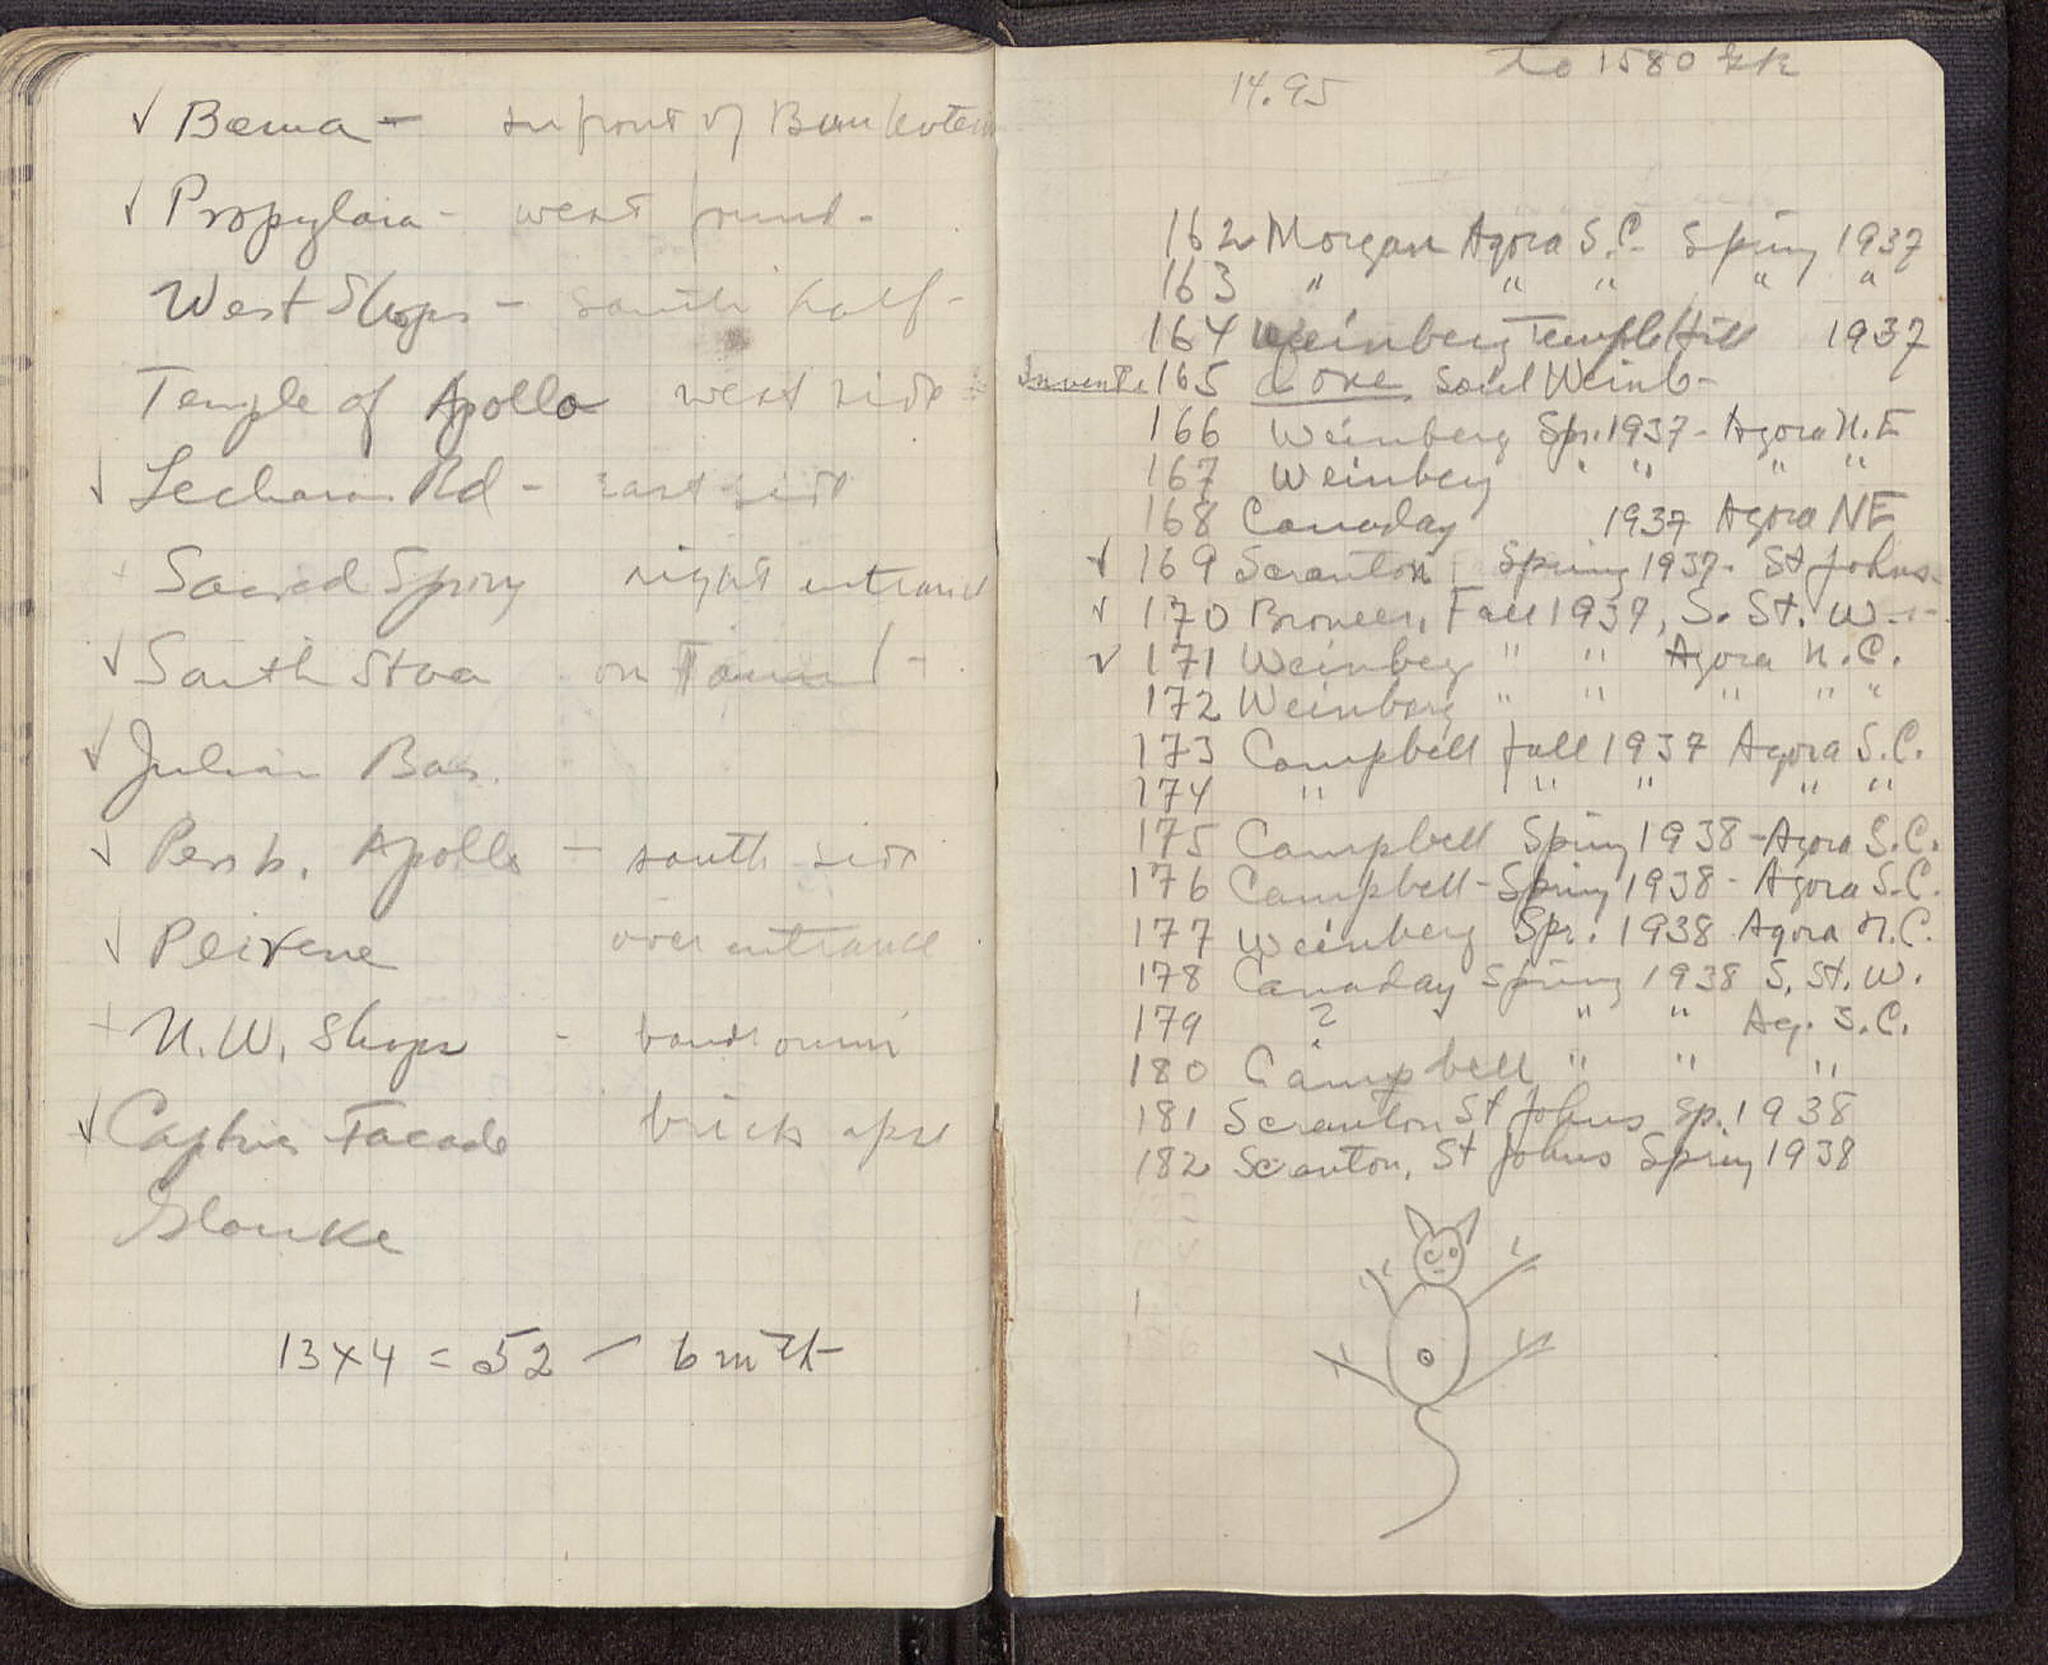 ✓ Bema - in front of
✓ Propylaia - west
West Shops - south half -
Temple of Apollo west side
✓ Lechaion Rd - east side
+ Sacred Spring right entrance
✓ South Stoa on
✓ Julian Bas.
✓ Perib. Apollo - south side
✓ Peirene over entrance
+ N.W. Shops -
✓ Captives Facade brick apse
Glauke
13 x 4 = 52 -
to 1580
14.95
162 Morgan Agora S.C. Spring 1937
163 " " " " "
164 Weinberg Temple Hill 1937
165 Saul Weinb-
166 Weinberg Spr. 1937 - Agora N.E
167 Weinberg " " " "
168 Canaday 1937 Agora NE
✓ 169 Scranton Spring 1937- St Johns-
✓ 170 Broneer, Fall 1937, S. St. W -
✓ 171 Weinberg " " Agora N.C.
172 Weinberg " " " " "
173 Campbell fall 1937 Agora S.C.
174 " " " " "
175 Campbell Spring 1938 - Agora S.C.
176 Campbell - Spring 1938 - Agora S.C.
177 Weinberg Spr. 1938 Agora N.C.
178 Canaday Spring 1938 S. St. W.
179 ? " " Ag. S.C.
180 Campbell " " "
181 Scranton St Johns Sp. 1938
182 Scranton, St Johns Spring 1938